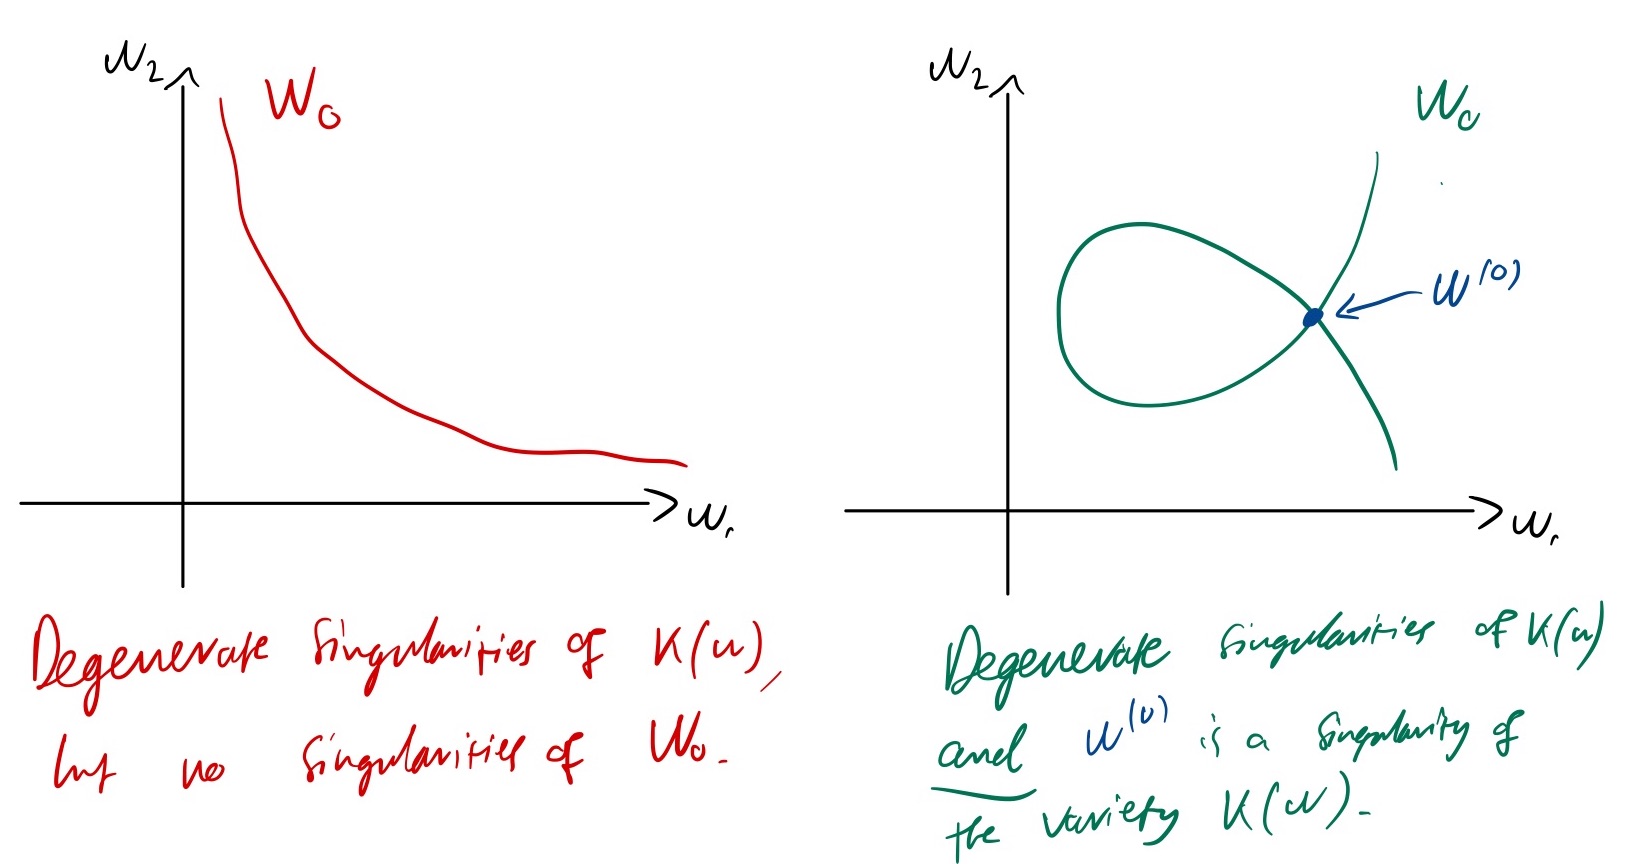 w₂
W₀
w₁
Degenerate singularities of K(w),
but no singularities of W₀.
w₂
W₀
w⁽⁰⁾
w₁
Degenerate singularities of K(w)
and w⁽⁰⁾ is a singularity of
the variety K(w).